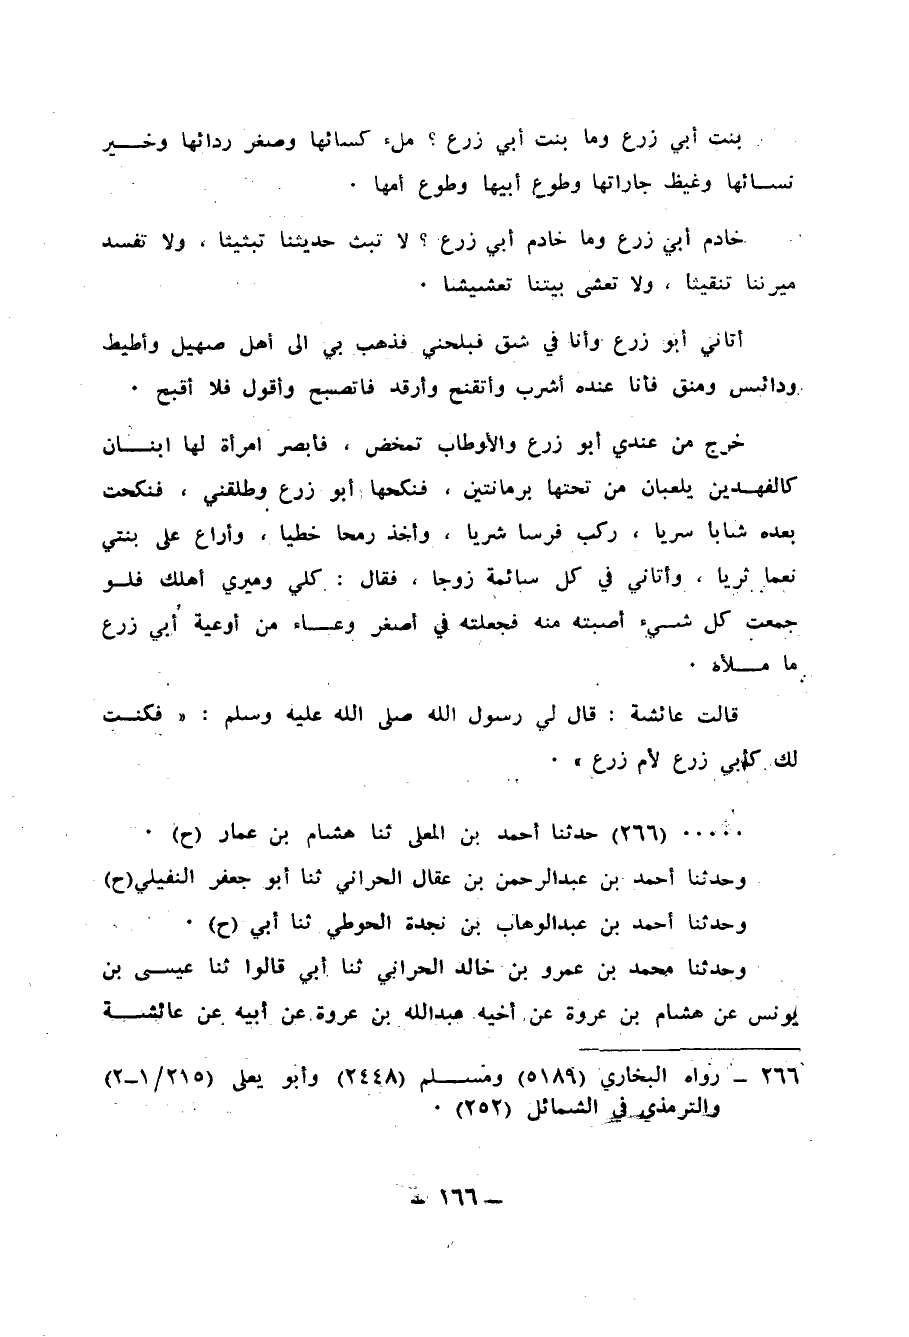 بنت أبي زرع وما بنت أبي زرع ؟ ملء كسائها وصغر ردائها وخـــير
نســائها وغيظ جاراتها وطوع أبيها وطوع أمها ٠
خادم أبي زرع وما خادم أبي زرع ؟ لا تبث حديثنا تبثيثا ، ولا تفسد
ميرتنا تنقيثا ، ولا تعشى بيتنا تعشيشا ٠
أتاني أبو زرع وأنا في شق فبلحني فذهب بي الى أهل صهيل وأطيط
ودائس ومنق فأنا عنده أشرب وأتقنح وأرقد فاتصبح وأقول فلا أقبح ٠
خرج من عندي أبو زرع والأوطاب تمخض ، فأبصر امرأة لها ابنــــان
كالفهــدين يلعبان من تحتها برمانتين ، فنكحها أبو زرع وطلقني ، فنكحت
بعده شابا سريا ، ركب فرسا شريا ، وأخذ رمحا خطيا ، وأراع على بنتي
نعما ثريا ، وأتاني في كل سائمة زوجا ، فقال : كلي وميري أهلك فلــو
جمعت كل شـــيء أصبته منه فجعلته في أصغر وعـــاء من أوعية أبي زرع
ما مـــلأه ٠
قالت عائشة : قال لي رسول الله صلى الله عليه وسلم : « فكنـــت
لك كأبي زرع لأم زرع » ٠
٠٠٠٠٠ (٢٦٦) حدثنا أحمد بن المعلى ثنا هشام بن عمار (ح) ٠
وحدثنا أحمد بن عبدالرحمن بن عقال الحراني ثنا أبو جعفر النفيلي(ح)
وحدثنا أحمد بن عبدالوهاب بن نجدة الحوطي ثنا أبي (ح) ٠
وحدثنا محمد بن عمرو بن خالد الحراني ثنا أبي قالوا ثنا عيســى بن
يونس عن هشام بن عروة عن أخيه عبدالله بن عروة عن أبيه عن عائشـــة
٢٦٦ ـ رواه البخاري (٥١٨٩) ومســـلم (٢٤٤٨) وأبو يعلى (٢١٥/١ـ٢)
والترمذي في الشمائل (٢٥٢) ٠
ـ ١٦٦ ـ